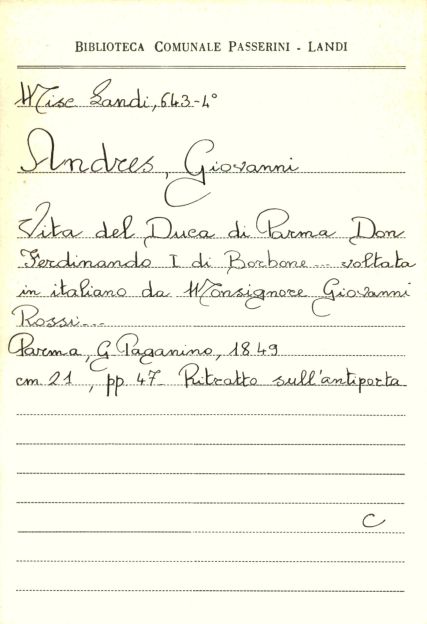 BIBLIOTECA COMUNALE PASSERINI - LANDI
Misc Landi, 643-4°
Andres, Giovanni
Vita del Duca di Parma Don
Ferdinando I di Borbone... voltata
in italiano da Monsignore Giovanni
Rossi...
Parma, G Paganino, 1849
cm 21, pp 47- Ritratto sull'antiporta
C